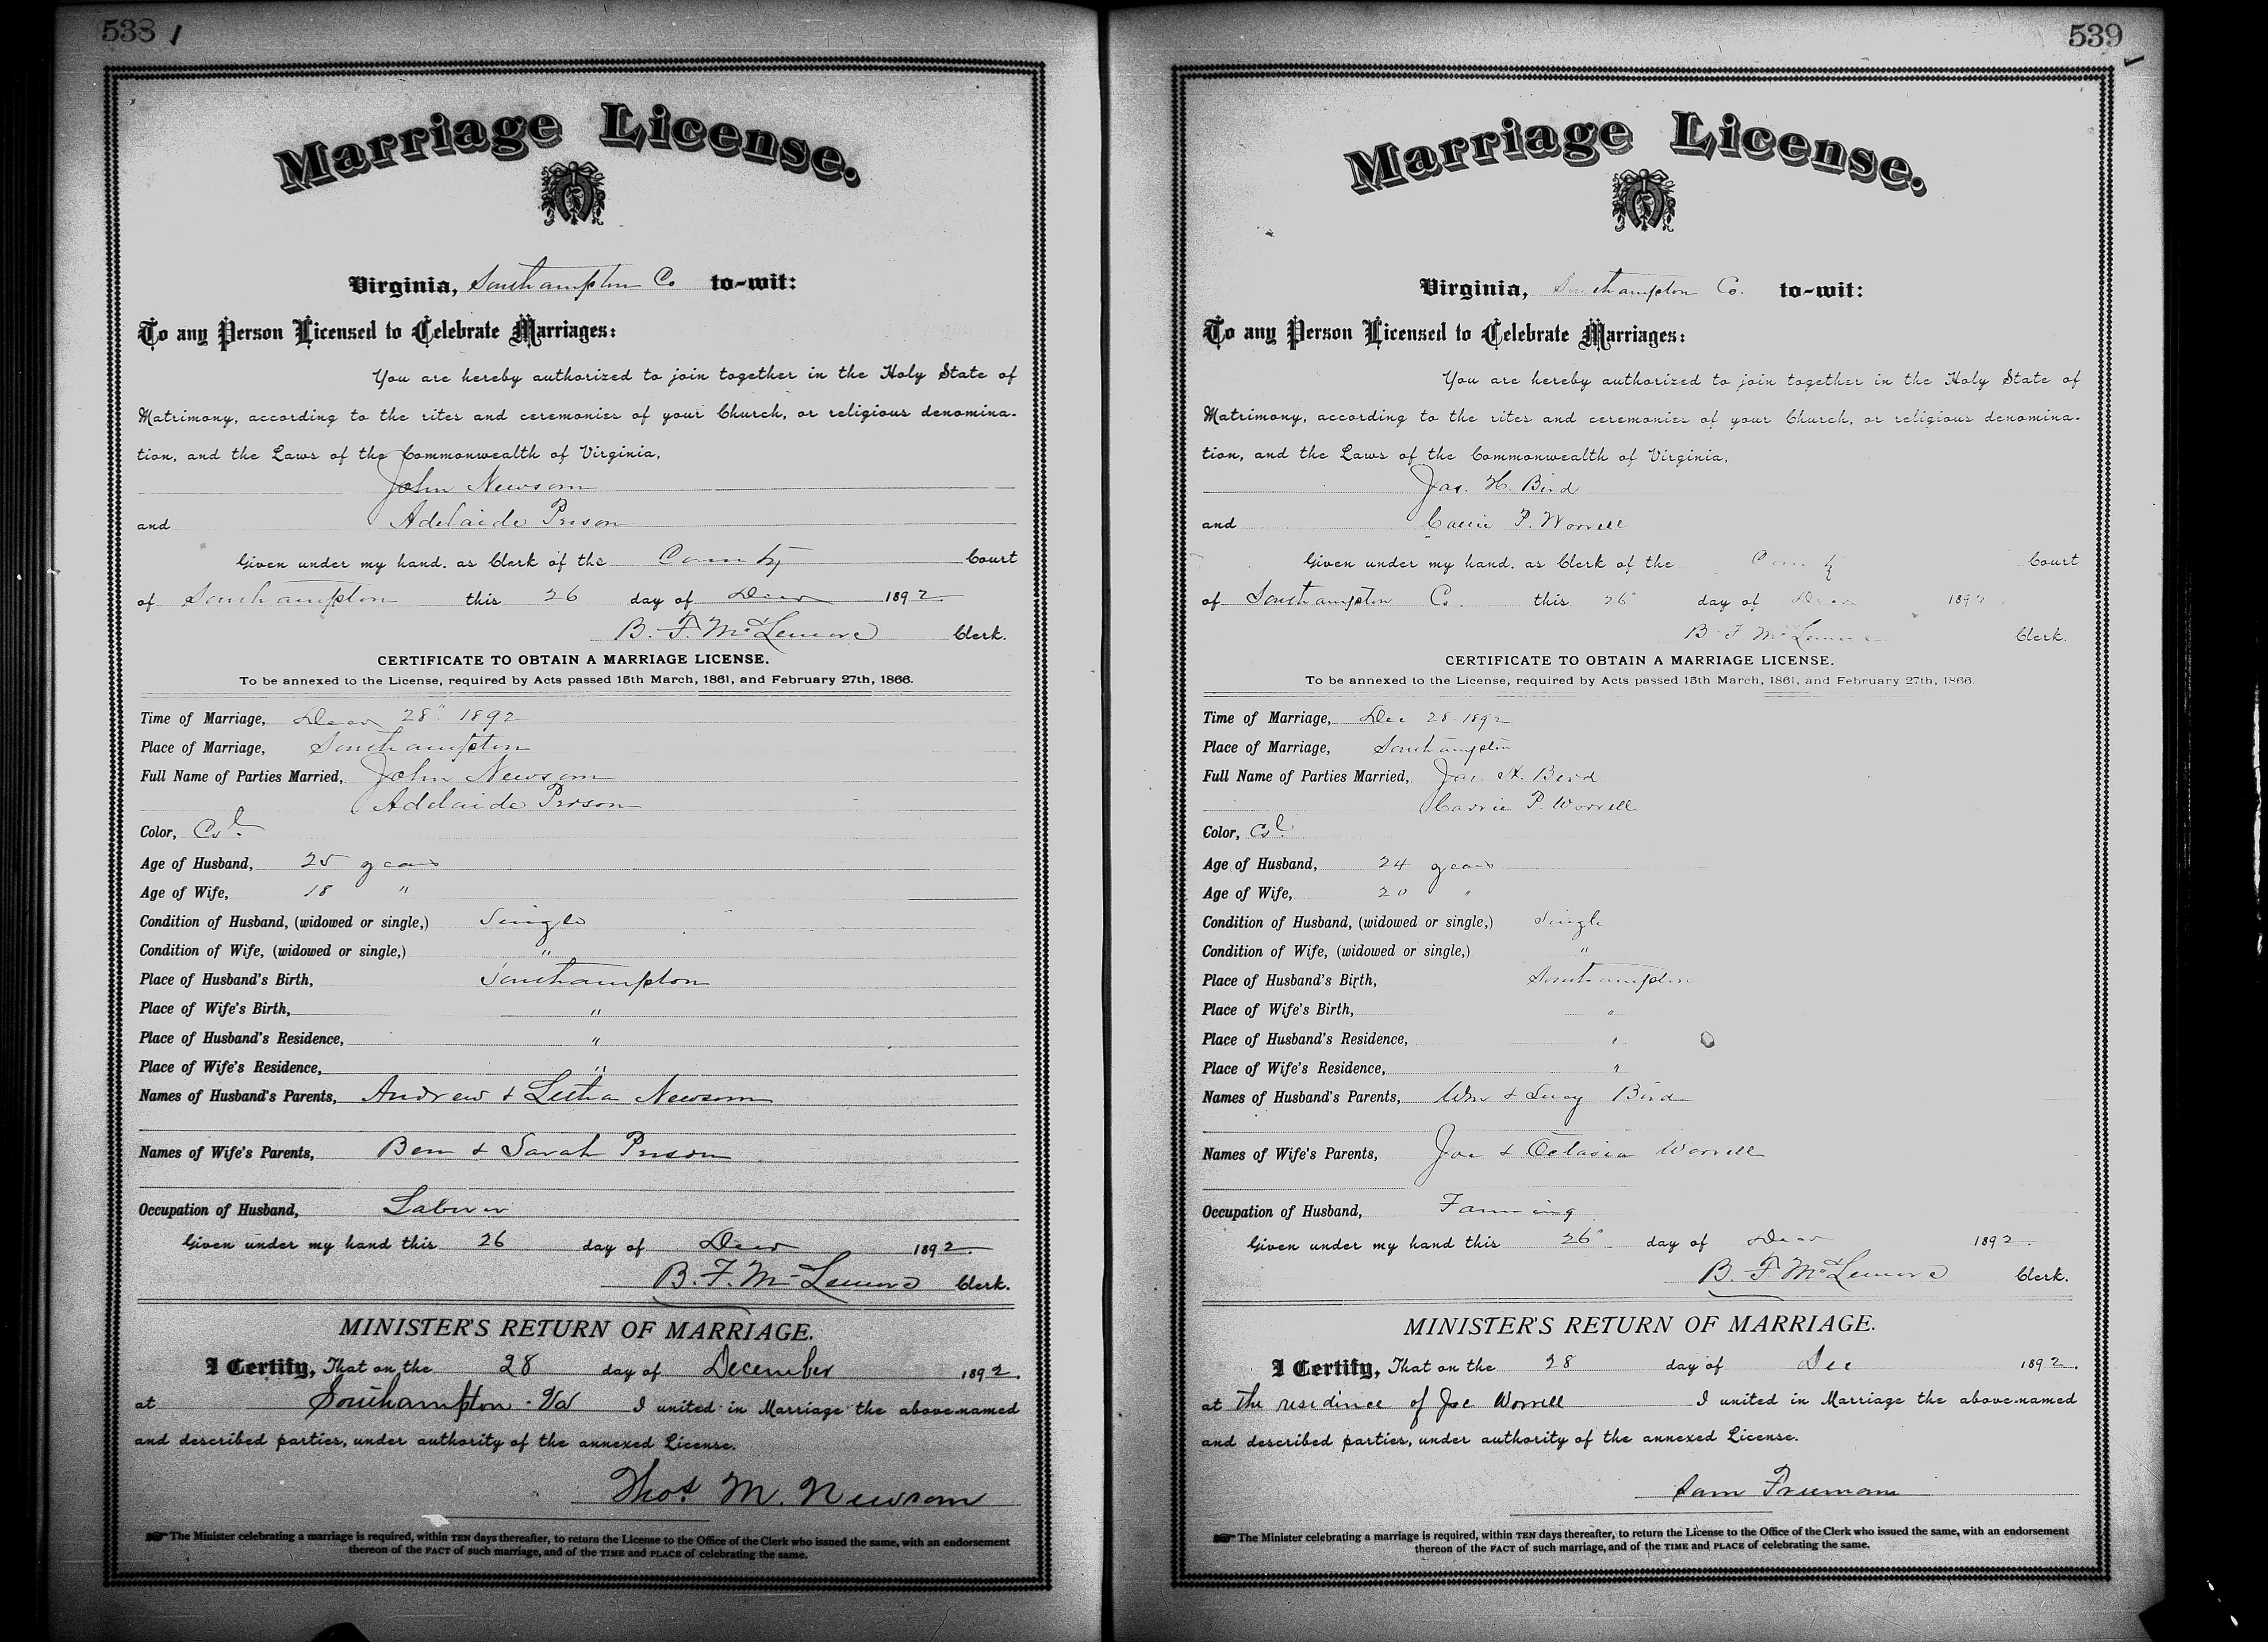 538
Marriage License.
Virginia, Southampton Co to-wit:
To any Person Licensed to Celebrate Marriages:
You are hereby authorized to join together in the Holy State of
Matrimony, according to the rites and ceremonies of your Church, or religious denomina-
tion, and the Laws of the Commonwealth of Virginia,
John Newsom
and Adelaide Person
Given under my hand. as Clerk of the County Court
of Southampton this 26 day of Decr 1892
B. F. McLemore Clerk.
CERTIFICATE TO OBTAIN A MARRIAGE LICENSE.
To be annexed to the License, required by Acts passed 15th March, 1861, and February 27th, 1866.
Time of Marriage, Decr 28" 1892
Place of Marriage, Southampton
Full Name of Parties Married, John Newsom
Adelaide Person
Color, Cold.
Age of Husband, 25 years
Age of Wife, 18 "
Condition of Husband, (widowed or single,) Single
Condition of Wife, (widowed or single,) "
Place of Husband's Birth, Southampton
Place of Wife's Birth, "
Place of Husband's Residence, "
Place of Wife's Residence, "
Names of Husband's Parents, Andrew & Letha Newsom
Names of Wife's Parents, Ben & Sarah Person
Occupation of Husband, Laborer
Given under my hand this 26 day of Decr 1892.
B. F. McLemore Clerk.
MINISTER'S RETURN OF MARRIAGE.
I Certify, That on the 28 day of December 1892.
at Southampton Va I united in Marriage the above-named
and described parties, under authority of the annexed License.
Thos M. Newsom
The Minister celebrating a marriage is required, within TEN days thereafter, to return the License to the Office of the Clerk who issued the same, with an endorsement
thereon of the FACT of such marriage, and of the TIME and PLACE of celebrating the same.
539
Marriage License.
Virginia, Southampton Co. to-wit:
To any Person Licensed to Celebrate Marriages:
You are hereby authorized to join together in the Holy State of
Matrimony, according to the rites and ceremonies of your Church, or religious denomina-
tion, and the Laws of the Commonwealth of Virginia,
Jas. H. Bird
and Carrie P. Worrell
Given under my hand. as Clerk of the County Court
of Southampton Co. this 26" day of Decr 1892.
B F McLemore Clerk.
CERTIFICATE TO OBTAIN A MARRIAGE LICENSE.
To be annexed to the License, required by Acts passed 15th March, 1861, and February 27th, 1866.
Time of Marriage, Dec 28 1892
Place of Marriage, Southampton
Full Name of Parties Married, Jas. H. Bird
Carrie P. Worrell
Color, Cold.
Age of Husband, 24 years
Age of Wife, 20 "
Condition of Husband, (widowed or single,) Single
Condition of Wife, (widowed or single,) "
Place of Husband's Birth, Southampton
Place of Wife's Birth, "
Place of Husband's Residence, "
Place of Wife's Residence, "
Names of Husband's Parents, Wm & Lucy Bird
Names of Wife's Parents, Joe & Worrell
Occupation of Husband, Farming
Given under my hand this 26" day of Decr 1892.
B. F. McLemore Clerk.
MINISTER'S RETURN OF MARRIAGE.
I Certify, That on the 28 day of Dec 1892.
at the residence of Joe Worrell I united in Marriage the above-named
and described parties, under authority of the annexed License.
Sam Freeman
The Minister celebrating a marriage is required, within TEN days thereafter, to return the License to the Office of the Clerk who issued the same, with an endorsement
thereon of the FACT of such marriage, and of the TIME and PLACE of celebrating the same.